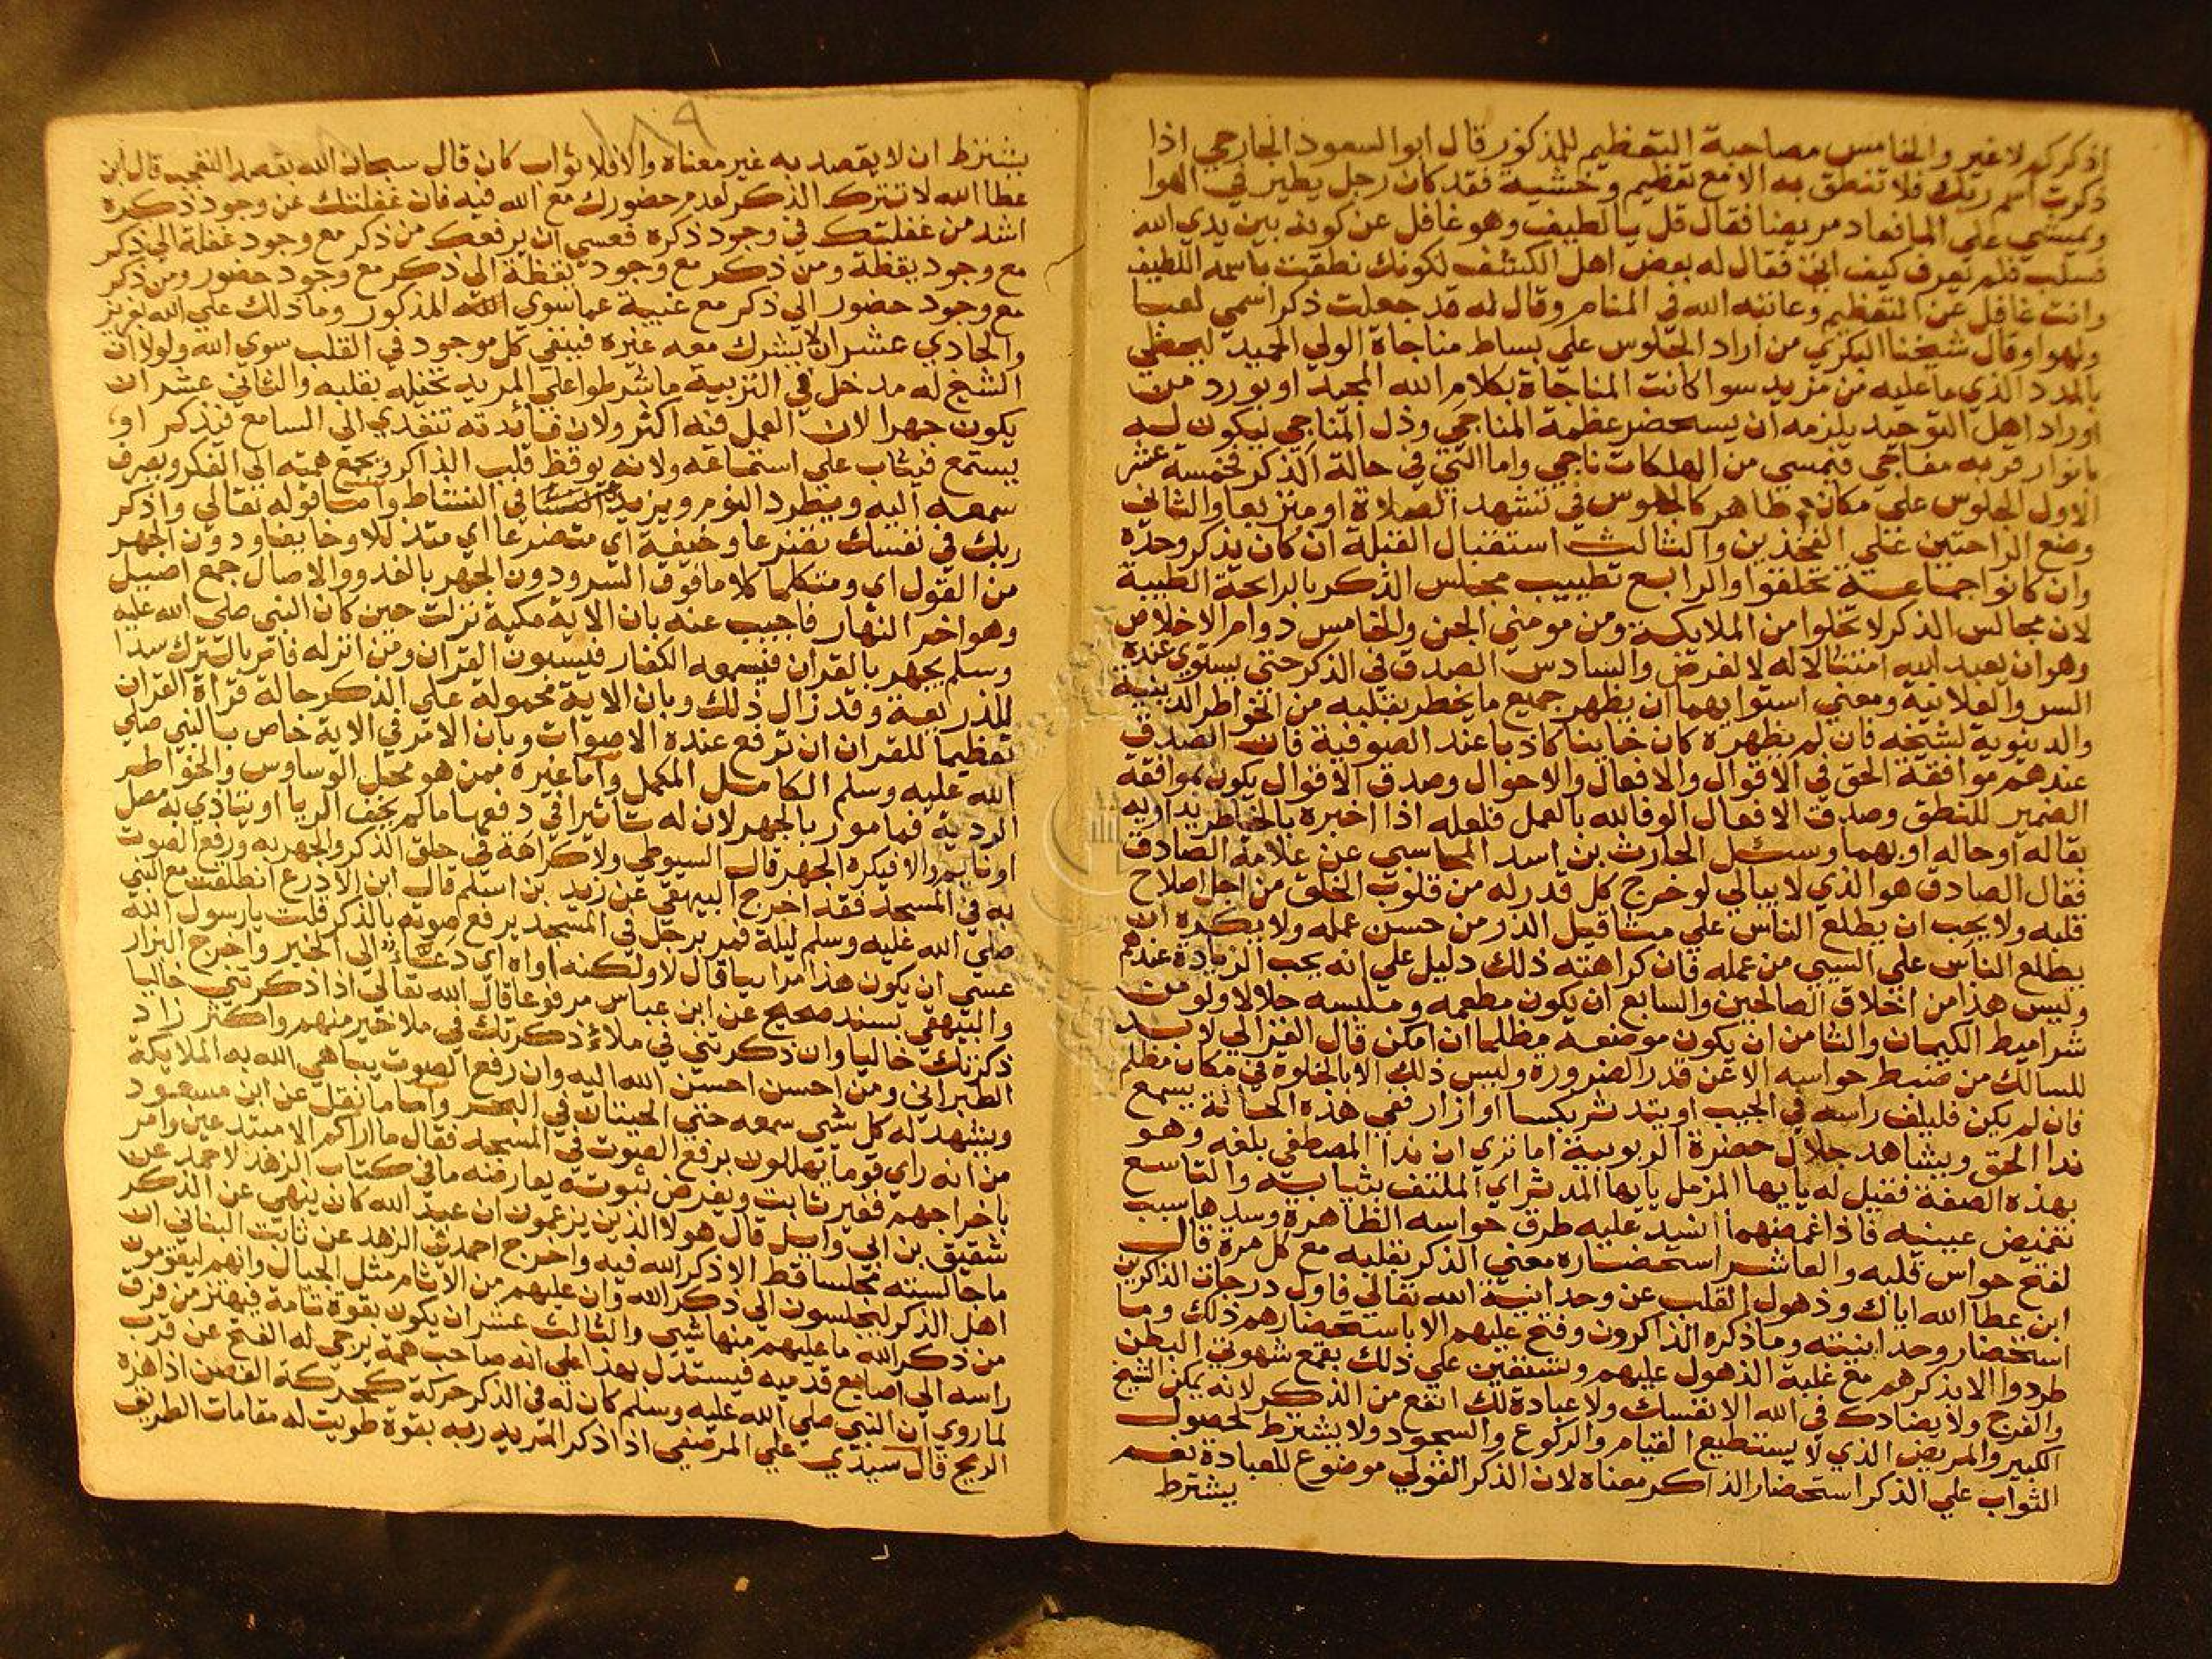 اذكركم لا غير والخامس مصاحبة التعظيم للمذكور قال ابو السعود الجارحي اذا
ذكرت اسم ربك فلا تنطق به الا مع تعظيم وخشية فقد كان رجل يطير في الهوا
ويمشي علي الما فعاد مريضا فقال قل يا لطيف وهو غافل عن كونه بين يدي الله
فسلب فلم يعرف كيف اتي فقال له بعض اهل الكشف لكونك نطقت باسمه اللطيف
وانت غافل عن التعظيم وعاتبه الله في المنام وقال له قد جعلت ذكر اسمي لعبا
ولهوا وقال شيخنا البكري من اراد الجلوس علي بساط مناجاة الولي الحميد ليحظي
بالمدد الذي ما عليه من مزيد سوا كانت المناجاة بكلام الله المجيد او بورد من
اوراد اهل التوحيد يلزمه ان يستحضر عظمة المناجي وذل المناجي ليكون له
بانوار قربه مفاجي فيمسي من الهلكات ناجي واما التي في حالة الذكر فخمسة عشر
الاول الجلوس علي مكان طاهر كالجلوس في تشهد الصلاة او متربعا والثاني
وضع الراحتين علي الفخذين والثالث استقبال القبلة ان كان يذكر وحده
وان كانوا جماعة تحلقوا والرابع تطييب مجلس الذكر بالرايحة الطيبة
لان مجالس الذكر لا تخلوا من الملايكة ومن مومني الجن والخامس دوام الاخلاص
وهو ان يعبد الله امتثالا له لا لغرض والسادس الصدق في الذكر حتي يستوي عنده
السر والعلانية ومعني استوايهما ان يظهر جميع ما يخطر بقلبه من الخواطر الدينية
والدنيوية لشيخه فان لم يظهره كان خاينا كاذبا عند الصوفية فان الصدق
عندهم موافقة الحق في الاقوال والافعال والاحوال وصدق الاقوال يكون بموافقة
الضمير للنطق وصدق الافعال الوفا لله بالعمل فلعله اذا اخبره بالخاطر يداويه
بقاله او حاله او بهما وسئل الحارث بن اسد المحاسبي عن علامة الصادق
فقال الصادق هو الذي لا يبالي لو خرج كل قدر له من قلوب الخلق من اجل اصلاح
قلبه ولا يحب ان يطلع الناس علي مثاقيل الذر من حسن عمله ولا يكره ان
يطلع الناس علي السيي من عمله فان كراهته ذلك دليل علي انه يحب الزيادة عندهم
وليس هذا من اخلاق الصالحين والسابع ان يكون مطعمه وملبسه حلالا ولو من
شراميط الكيمان والثامن ان يكون موضعه مظلما ان امكن قال الغزالي لا بد
للسالك من ضبط حواسه الا عن قدر الضرورة وليس ذلك الا بالخلوة في مكان مظلم
فان لم يكن فليلف راسه في الجيب او يتدثر بكسا او ازار ففي هذه الحالة يسمع
ندا الحق ويشاهد جلال حضرة الربوبية اما تري ان ندا المصطفي بلغه وهو
بهذه الصفة فقيل له يا يها المزمل يا يها المدثر اي الملتف بثيابه والتاسع
تغميض عينيه فاذا غمضهما انسد عليه طرق حواسه الظاهرة وسدها سبب
لفتح حواس قلبه والعاشر استحضاره معني الذكر بقلبه مع كل مرة قال
ابن عطا الله اياك وذهول القلب عن وحدانية الله تعالي فاول درجات الذاكرين
استحضار وحدانيته وما ذكره الذاكرون وفتح عليهم الا باستحضارهم ذلك وما
طردوا الا بذكرهم مع غلبة الذهول عليهم وتستعين علي ذلك بقمع شهوتي البطن
والفرج ولا يضادك في الله الا نفسك ولا عبادة لك انفع من الذكر لانه يمكن الشيخ
الكبير والمريض الذي لا يستطيع القيام والركوع والسجود ولا يشترط لحصول
الثواب علي الذكر استحضار الذاكر معناه لان الذكر القولي موضوع للعبادة نعم
يشترط
١٨٩
يشترط ان لا يقصد به غير معناه والا فلا ثواب كان قال سبحان الله بقصد التعجب قال ابن
عطا الله لا تترك الذكر لعدم حضورك مع الله فيه فان غفلتك عن وجود ذكره
اشد من غفلتك في وجود ذكره فعسي ان يرفعك من ذكر مع وجود غفلة الي ذكر
مع وجود يقظة ومن ذكر مع وجود يقظة الي ذكر مع وجود حضور ومن ذكر
مع وجود حضور الي ذكر مع غيبة عما سوي المذكور وما ذلك علي الله بعزيز
والحادي عشر ان لا يشرك معه غيره فينفي كل موجود في القلب سوي الله ولولا ان
الشيخ له مدخل في التربية ما شرطوا علي المريد تخيله بقلبه والثاني عشر ان
يكون جهرا لان العمل فيه اكثر ولان فائدته تتعدي الي السامع فيذكر او
يستمع فيثاب علي استماعه ولانه يوقظ قلب الذاكر ويجمع همه الي الفكر ويصرف
سمعه اليه ويطرد النوم ويزيد في النشاط واما قوله تعالي واذكر
ربك في نفسك تضرعا وخيفة اي متضرعا اي متذللا وخايفا ودون الجهر
من القول اي ومتكلما كلاما فوق السر ودون الجهر بالغدو والاصال جمع اصيل
وهو اخر النهار فاجيب عنه بان الاية مكية نزلت حين كان النبي صلي الله عليه
وسلم يجهر بالقران فيسمعه الكفار فيسبون القران ومن انزله فامر بالترك سدا
للذريعة وقد زال ذلك وبان الاية محمولة علي الذكر حالة قراة القران
تعظيما للقران ان ترفع عنده الاصوات وبان الامر في الاية خاص بالنبي صلي
الله عليه وسلم الكامل المكمل واما غيره ممن هو محل الوساوس والخواطر
الردية فمامور بالجهر لان له تاثيرا في دفعها ما لم يخف الريا او يتاذي به مصل
او نايم والا فيكره الجهر قال السيوطي ولا كراهة في حلق الذكر والجهر به ورفع الصوت
به في المسجد فقد اخرج البيهقي عن زيد بن اسلم قال ابن الادرع انطلقت مع النبي
صلي الله عليه وسلم ليلة فمر برجل في المسجد يرفع صوته بالذكر قلت يا رسول الله
عسي ان يكون هذا مرايا قال لا ولكنه اواه اي دعاء الي الخير واخرج البزار
والبيهقي بسند صحيح عن ابن عباس مرفوعا قال الله تعالي اذا ذكرتني خاليا
ذكرتك خاليا وان ذكرتني في ملاء ذكرتك في ملا خير منهم واكثر زاد
الطبراني ومن احسن احسن الله اليه وان رفع الصوت يباهي الله به الملايكة
ويشهد له كل شي سمعه حتي الحيتان في البحر واما ما نقل عن ابن مسعود
من انه راي قوما يهللون برفع الصوت في المسجد فقال ما اراكم الا مبتدعين وامر
باخراجهم فغير ثابت وبفرض ثبوته يعارضه ما في كتاب الزهد لاحمد عن
شقيق بن ابي وايل قال هولا الذين يزعمون ان عبد الله كان ينهي عن الذكر
ما جالسته مجلسا قط الا ذكر الله فيه واخرج احمد في الزهد عن ثابت البناني ان
اهل الذكر ليجلسون الي ذكر الله وان عليهم من الاثام مثل الجبال وانهم ليقومون
من ذكر الله ما عليهم منها شي والثالث عشر ان يكون بقوة تامة فيهتز من فرق
راسه الي اصابع قدميه فيستدل بهذا علي انه صاحب همة يرجي له الفتح عن قرب
لما روي ان النبي صلي الله عليه وسلم كان له في الذكر حركة كحركة الغصن اذا هزه
الريح قال سيدي علي المرصفي اذا ذكر المريد ربه بقوة طويت له مقامات الطريق